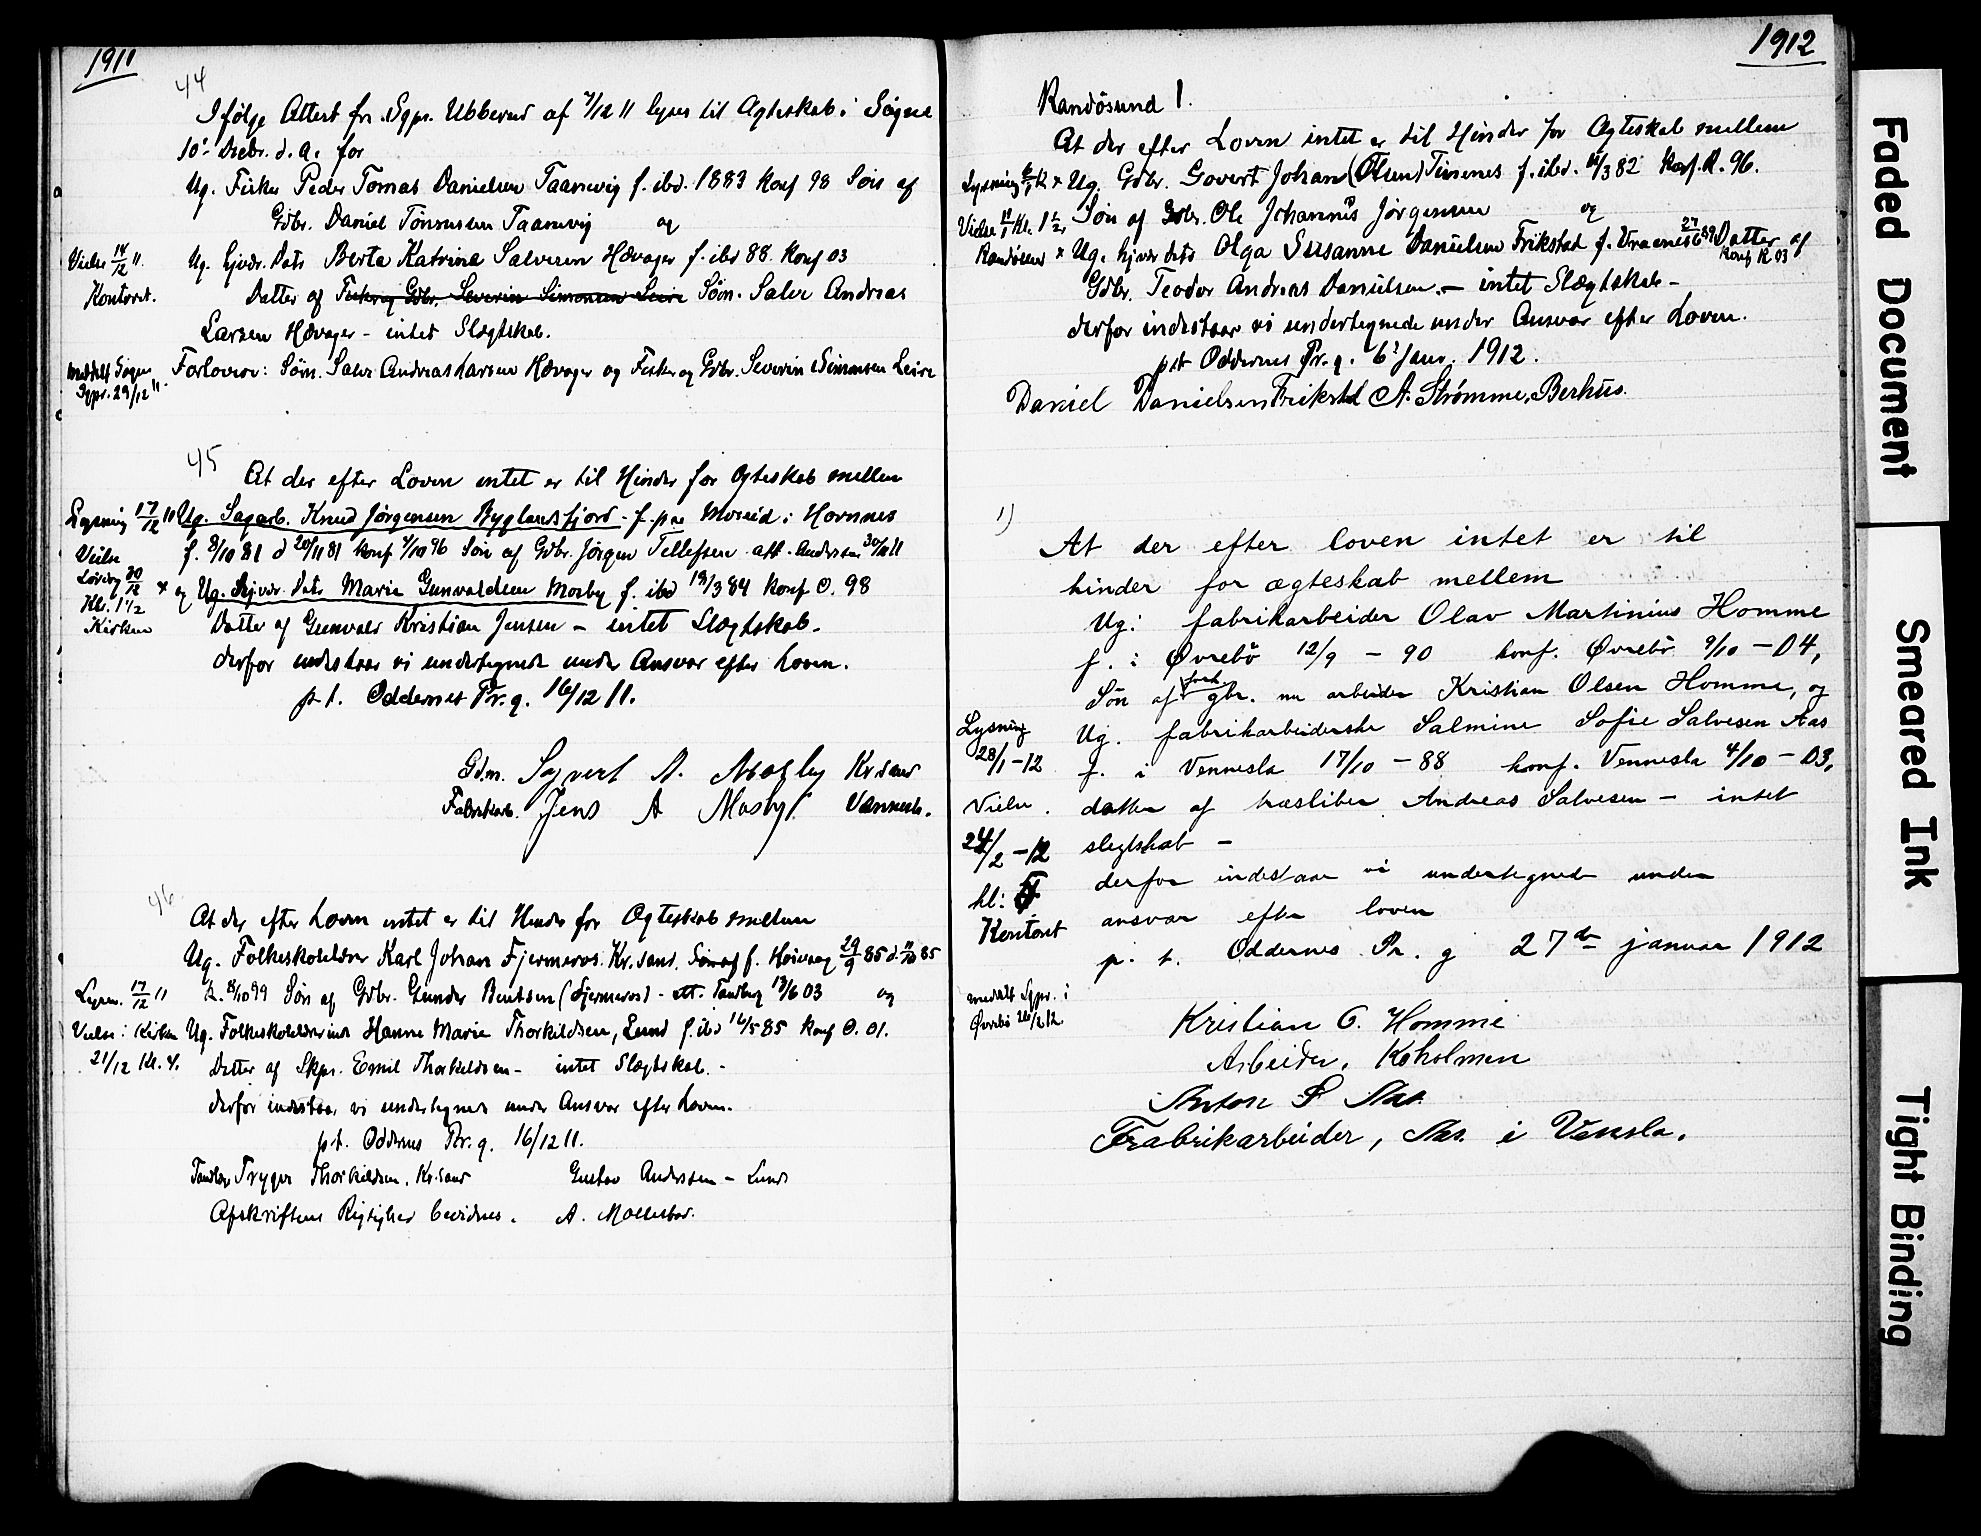 1911
44
Ifølge Attest fra Sgpr. Ubberud af 7/12 11 lyses til Ægteskab i Søgne
10' Decbr. d. A. for
Ug. Fisker Peder Tomas Danielsen Taanevig f. ibd. 1883 konf 98 Søn af
Gdbr. Daniel Tønnesen Taanevig og
Vielse 14/12 11. Ug. hjvær. Dats Berta Katrine Salvesen Hævager f. ibd 88. konf 03
Kontoret. Datter af Fisker og Gdbr. Severin Simonsen Leire Søm. Salve Andreas
Larsen Hævager - intet Slægtskab.
meddelt Søgne Sgpr. 29/12 11. Forlovere: Søm. Salve Andreas Larsen Hævager og Fisker og Gdbr. Severin Simonsen Leire
45
At der efter Loven intet er til Hinder for Ægteskab mellem
Lysning 17/12 11 Ug. Sagarb. Knud Jørgensen Byglandsfjord f. paa Moseid i Hornnes
Vielse f. 8/10 81 d 20/11 81 konf 4/10 96 Søn af Gdbr. Jørgen Tellefsen att. Andersen 30/11 11
Lørdag 30/12 x og Ug. hjvær. Dats Marie Gunvaldsen Mosby f. ibd 19/3 84 konf O. 98
Kl. 1 1/2
Kirken Datter af Gunvald Kristian Jensen - intet Slægtskab.
derfor indestaar vi undertegnede under Ansvar efter Loven.
p t. Oddernes Pr. g. 16/12 11.
Gdm. Syvert A. Mosby Kr.sand
Fabrikarb. Jens A Mosby. Vennesla.
46
At der efter Loven intet er til Hinder for Ægteskab mellem
Ug. Folkeskolelærer Karl Johan Fjermeros. Kr.sand. Søn af f. Høivaag 29/9 85 d. 11/10 85
Lysn. 17/12 11 K. 8/10 99 Søn af Gdbr. Gunder Bentsen (Fjermeros) - att. Tandberg 19/6 03 og
Vielse i Kirken Ug. Folkeskolelærerinde Hanne Marie Thorkildsen, Lund f. ibd 16/5 85 konf O. 01.
21/12 Kl. 4. Datter af Skpr. Emil Thorkildsen - intet Slægtskab. -
derfor indestaar vi undertegnede under Ansvar efter Loven.
p t. Oddernes Pr. g. 16/12 11.
Tandlæge Trygve Thorkildsen. Kr.sand Gustav Anderssen - Lund
Afskriftens Rigtighed bevidnes. A. Mollestad.
1912
Randøsund 1.
At der efter Loven intet er til Hinder for Ægteskab mellem
Lysning x Ug. Gdbr. Govert Johan (Olsen) Timenes f. ibd. 82 konf. R. 96.
Vielse Kl. 1 1/2 Søn af Gdbr. Ole Johannes Jørgensen og
Randøsund x Ug. hjvær dats Olga Susanne Danielsen Frikstad f. Vraanes 27/6 89 Datter af
konf R 03
Gdbr. Teodor Andreas Danielsen - intet Slægtskab -
derfor indestaar vi undertegnede under Ansvar efter Loven.
p t Oddernes Pr. g. 6' Janr. 1912.
Daniel Danielsen Frikstad A. Strømme, Berhus.
1)
At der efter loven intet er til
hinder for ægteskab mellem
Ug. fabrikarbeider Olav Martinius Homme
f. i Øvrebø 12/9 - 90 konf. Øvrebø 9/10 - 04,
Søn af forh. gbr. nu arbeider Kristian Olsen Homme, og
Lysning Ug. fabrikarbeiderske Salmine Sofie Salvesen Aas
28/1 - 12 f. i Vennesla 17/10 - 88 konf. Vennesla 4/10 - 03,
Vielse. datter af træsliber Andreas Salvesen - intet
24/2 - 12 slegtskab -
kl: derfor indestaar vi undertegnede under
Kontoret ansvar efter loven
p. t. Oddernes Pr. g 27de januar 1912
meddelt Sgpr. i
Øvrebø 26/2 12. Kristian O. Homme
Arbeider. Koholmen
Anton S Aas.
Frabrikarbeider, Aas. i Vensla.
Faded Document
Smeared Ink
Tight Binding